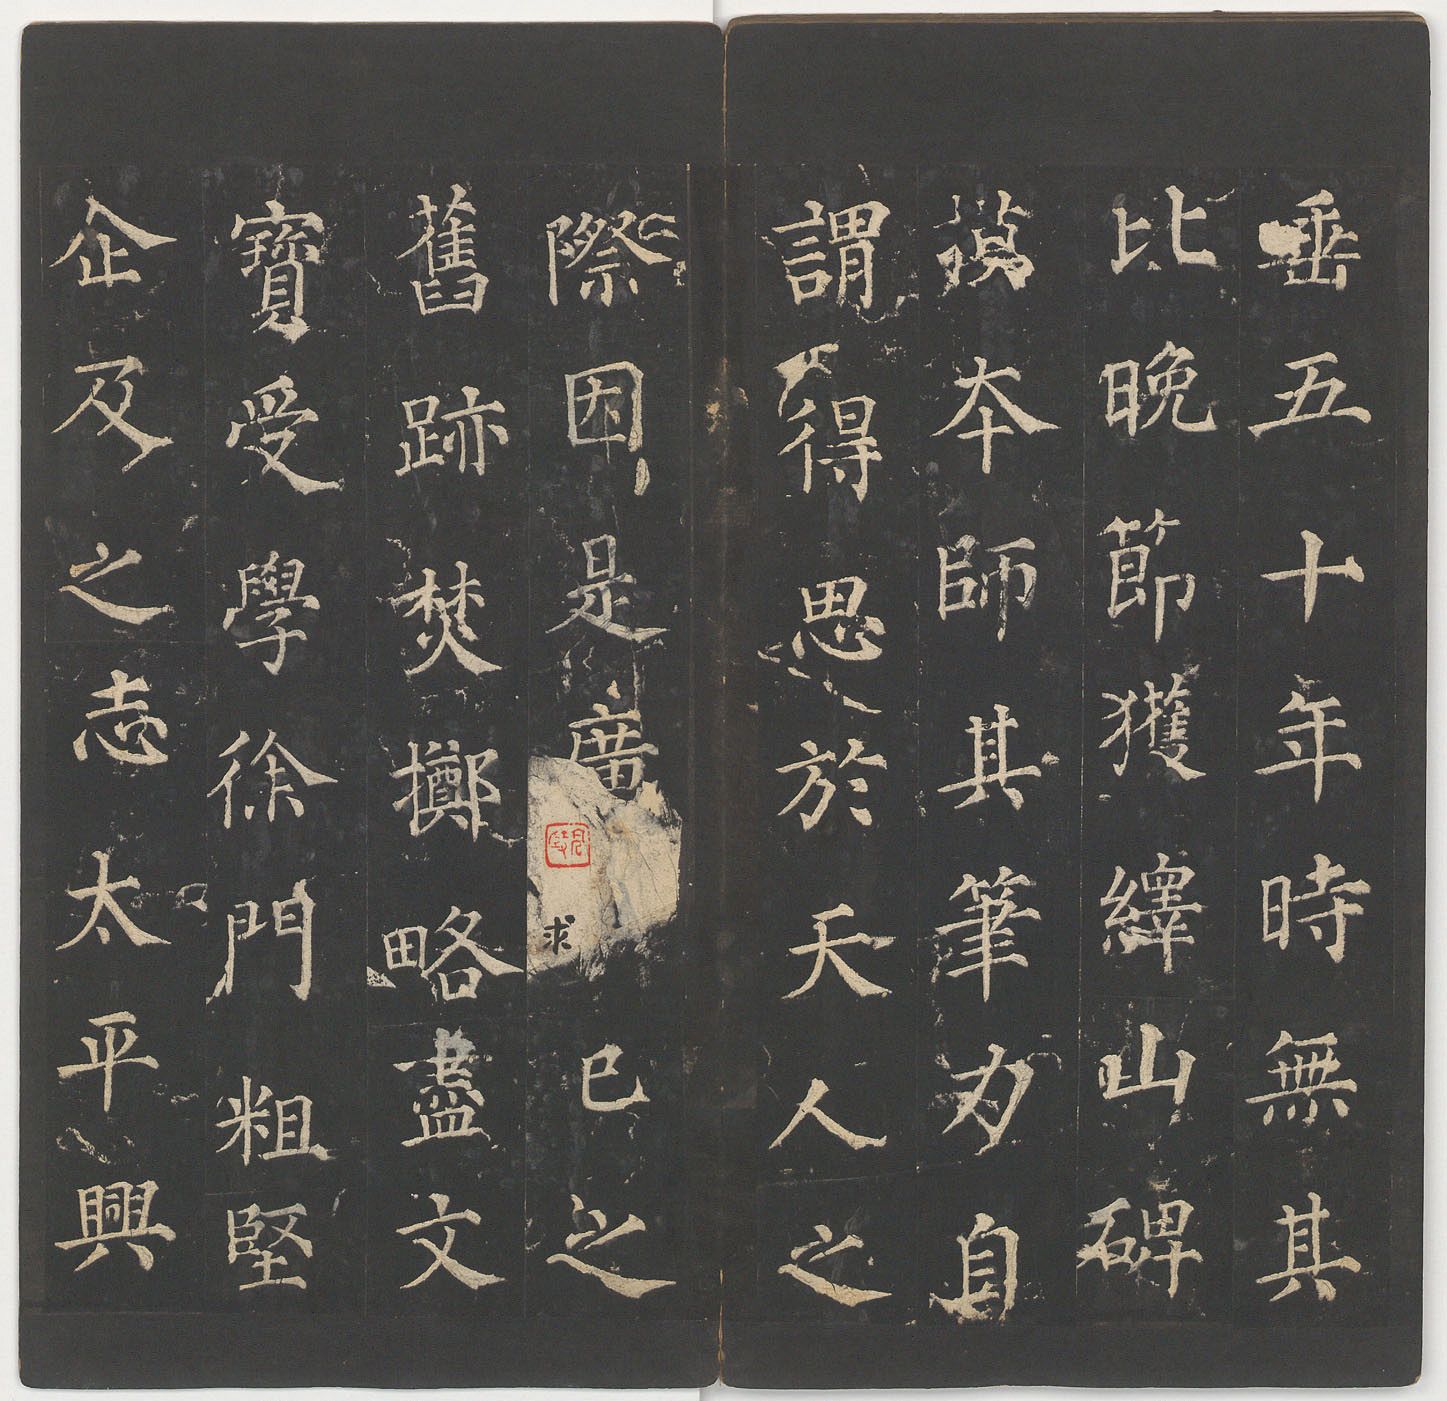 垂五十年時無其
比晚節獲繹山碑
摸本師其筆力自
謂得思於天人之
際因是廣求己之
舊跡焚擲略盡文
寶受學徐門粗堅
企及之志太平興